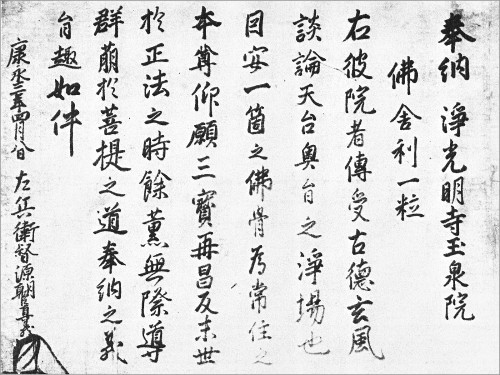 奉納 淨光明寺玉泉院
佛舎利一粒
右彼院者傳受古德玄風
談論天台奥旨之淨場也
因安一箇之佛骨為常住之
本尊仰願三寶再昌及末世
於正法之時餘薫無際導
群萠於菩提之道奉納之義
旨趣如件
康永三年四月八日 左兵衛督源朝臣直義